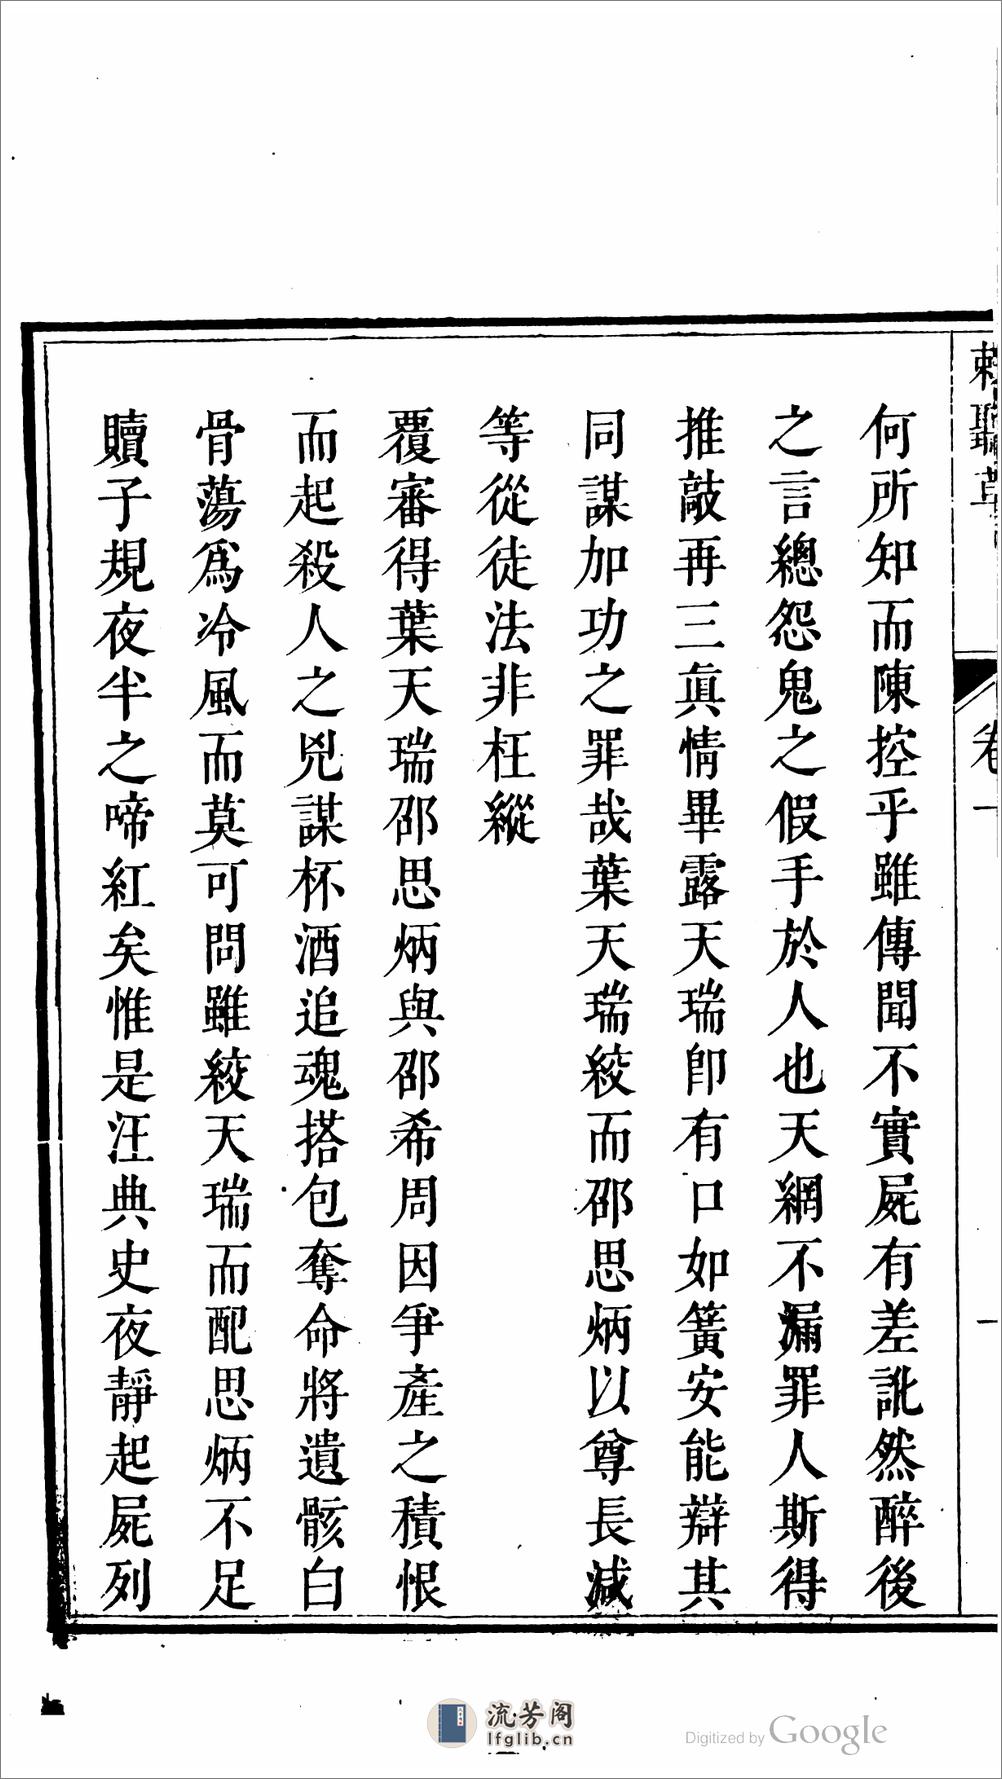 何所知而陳控乎雖傳聞不實屍有差訛然醉後
之言總怨鬼之假手於人也天網不漏罪人斯得
推敲再三眞情畢露天瑞卽有口如簧安能辯其
同謀加功之罪哉葉天瑞絞而邵思炳以尊長減
等從徒法非枉縱
覆審得葉天瑞邵思炳與邵希周因爭產之積恨
而起殺人之兇謀杯酒追魂搭包奪命將遺骸白
骨蕩爲冷風而莫可問雖絞天瑞而配思炳不足
贖子規夜半之啼紅矣惟是汪典史夜靜起屍列
卷一
一
流芳阁
lfglib.cn
Digitized by Google